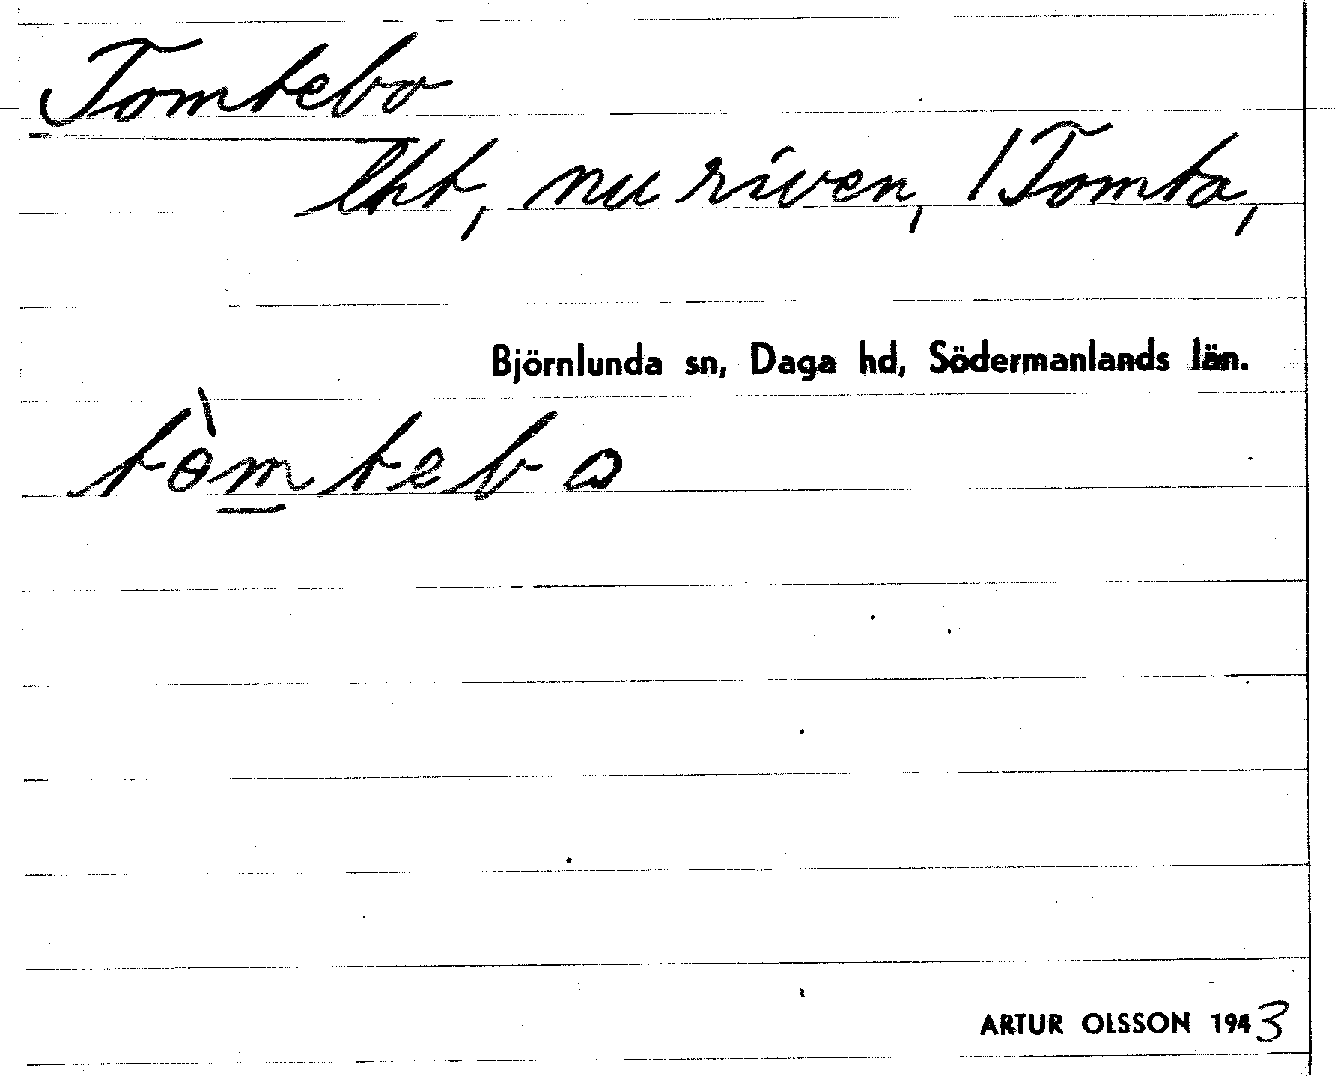 Tomtebo
lht, nu riven, /Tomta,
Björnlunda sn, Daga hd, Södermanlands län.
tòmtebo
ARTUR OLSSON 1943